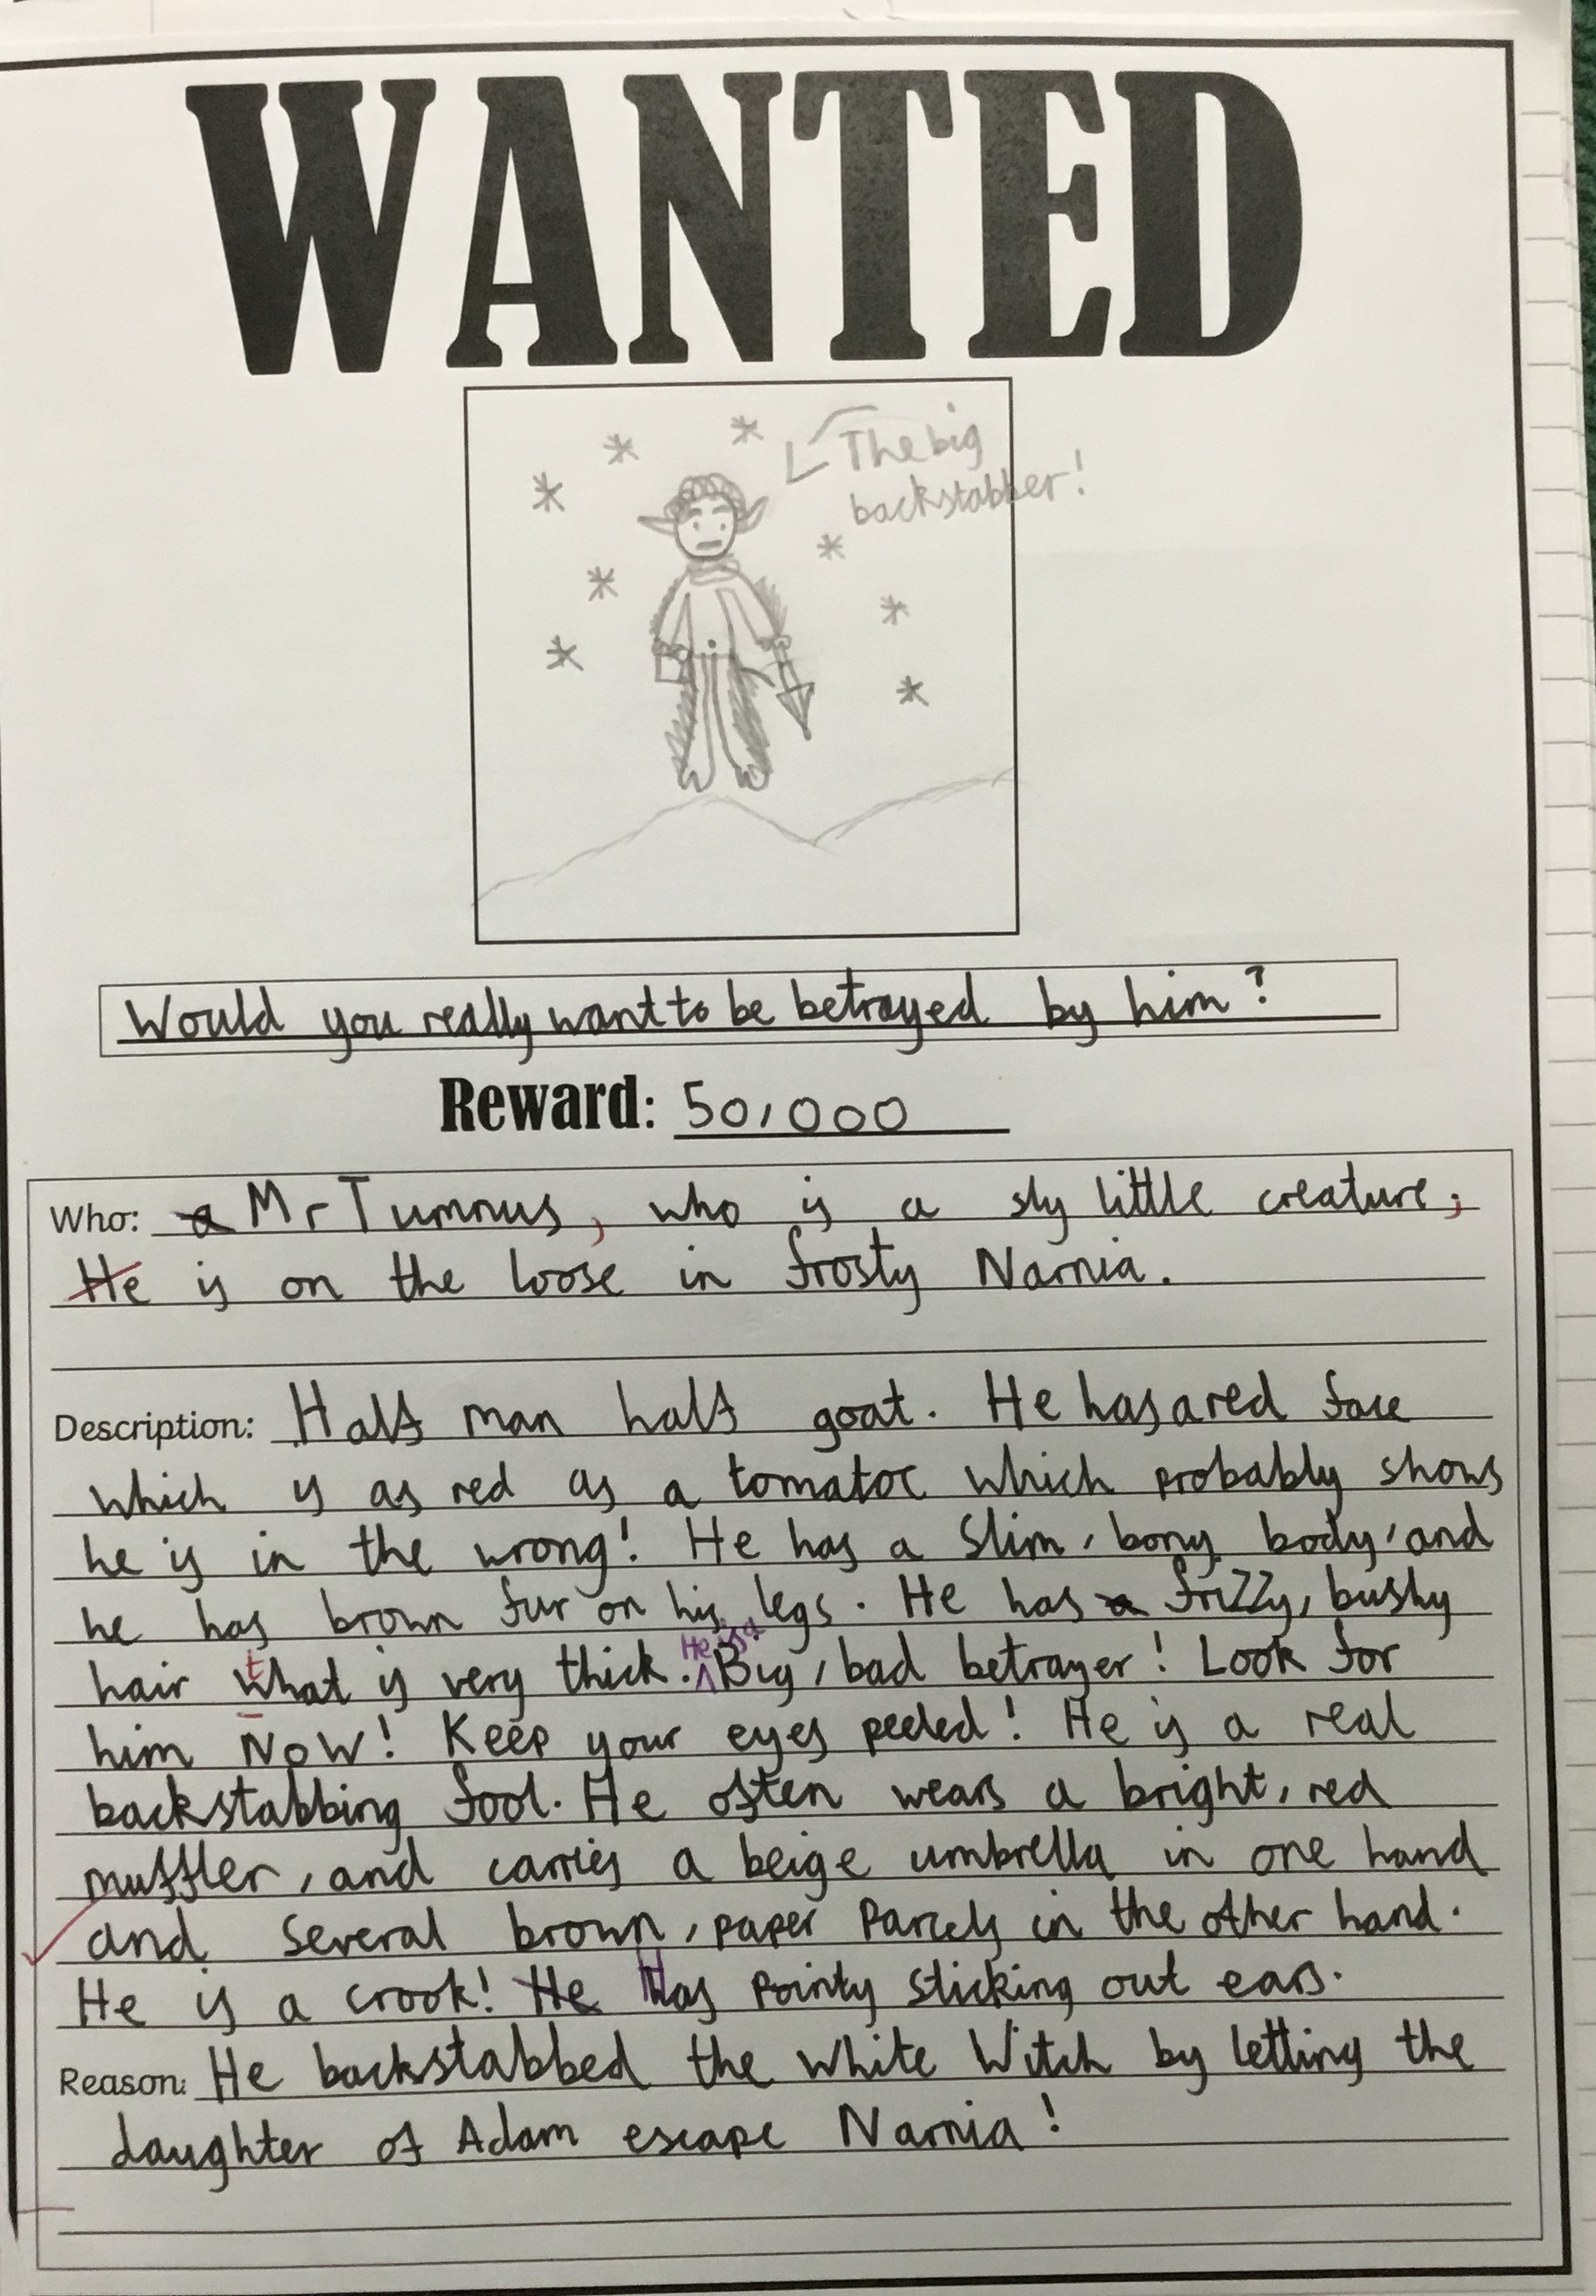 WANTED
The big
backstabber!
Would you really want to be betrayed by him?
Reward: 50,000
Who: a Mr Tumnus, who is a sly little creature,
He is on the loose in frosty Narnia.
Description: Half man half goat. He has a red face
which is as red as a tomatoe which probably shows
he is in the wrong! He has a slim, bony body, and
he has brown fur on his legs. He has a frizzy, bushy
hair that is very thick. He is a Big, bad betrayer! Look for
him NOW! Keep your eyes peeled! He is a real
backstabbing fool. He often wears a bright, red
muffler, and carries a beige umbrella in one hand
and several brown, paper parcels in the other hand.
He is a crook! He Has pointy sticking out ears.
Reason: He backstabbed the White Witch by letting the
daughter of Adam escape Narnia!